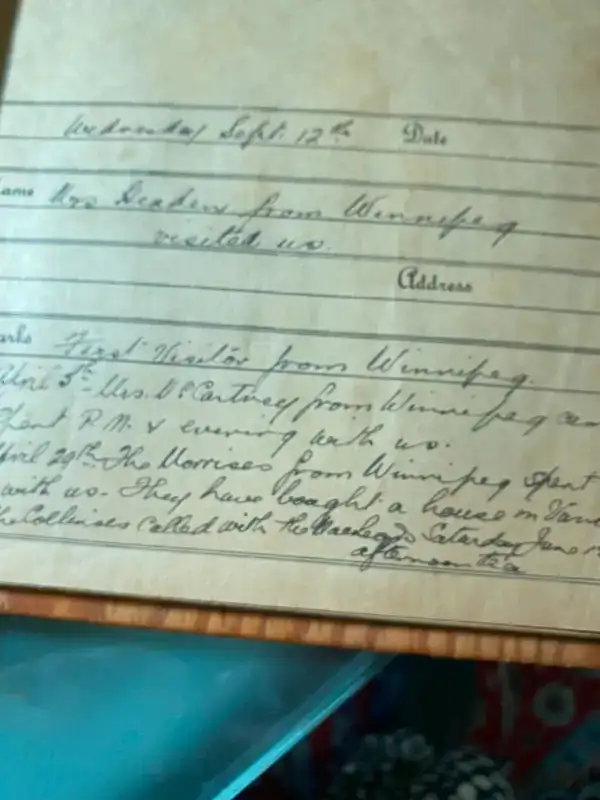 Wednesday Sept. 12th Date
ame Mrs from Winnipeg
visited us.
Address
arks First Visitor from Winnipeg.
April 5th Mrs. McCartney from Winnipeg
spent P.M. & evening with us.
April 29th The Morrises from Winnipeg spent
with us. They have bought a house in Vanc
The Collinses called with the Saturday June
afternoon tea